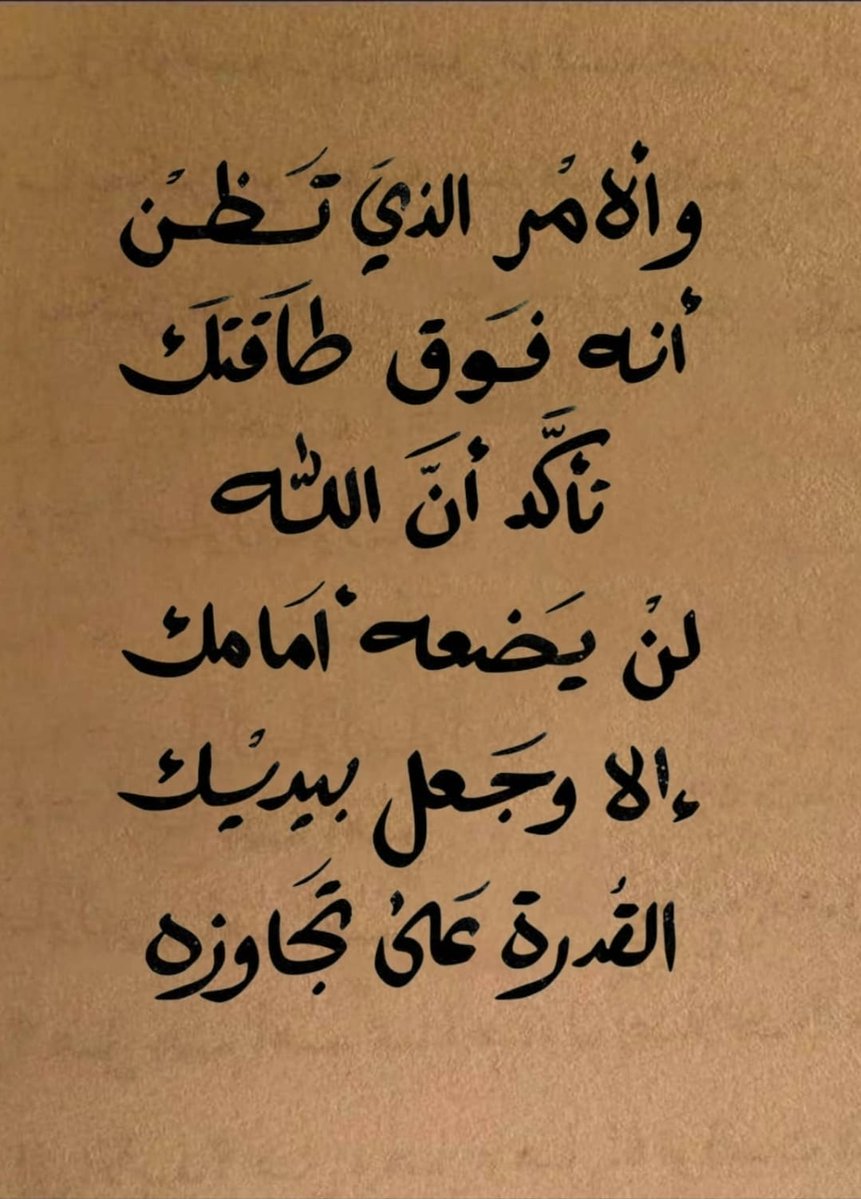 وألامْر الذيَ تَظنْ
أنه فَوق طاَقتَك
تأكَّد أنَّ اللّه
لنْ يَضعه أمَامك
إلا وجَعل بيديْك
القُدرة عَلىْ تجَاوزه